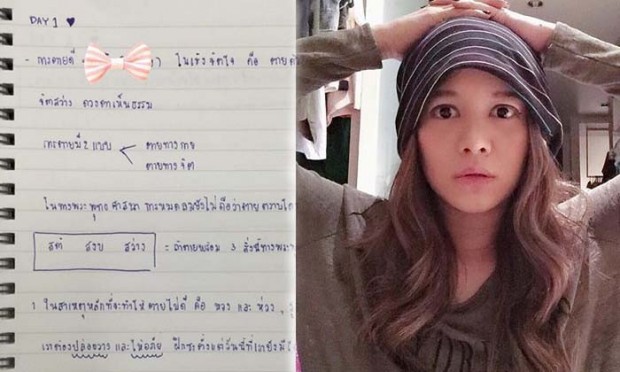 DAY 1 ♥
- การตายดี ) ในเชิงจิตใจ คือ ตาย
จิตสว่าง ดวงตาเห็นธรรม
การตายมี 2 แบบ
ตายทางกาย
ตายทางจิต
ในทางพระพุทธศาสนา การหมดลมยังไม่ถือว่าตาย
สติ สงบ สว่าง = ถ้าตายพร้อม 3 สิ่งนี้ทางพระ
ในสาเหตุหลักที่จะทำให้ตายไม่ดี คือ หวง และ ห่วง ,
เราต้องปล่อยวาง และให้อภัย ฝึกซะตั้งแต่วันนี้ที่เรายังมี